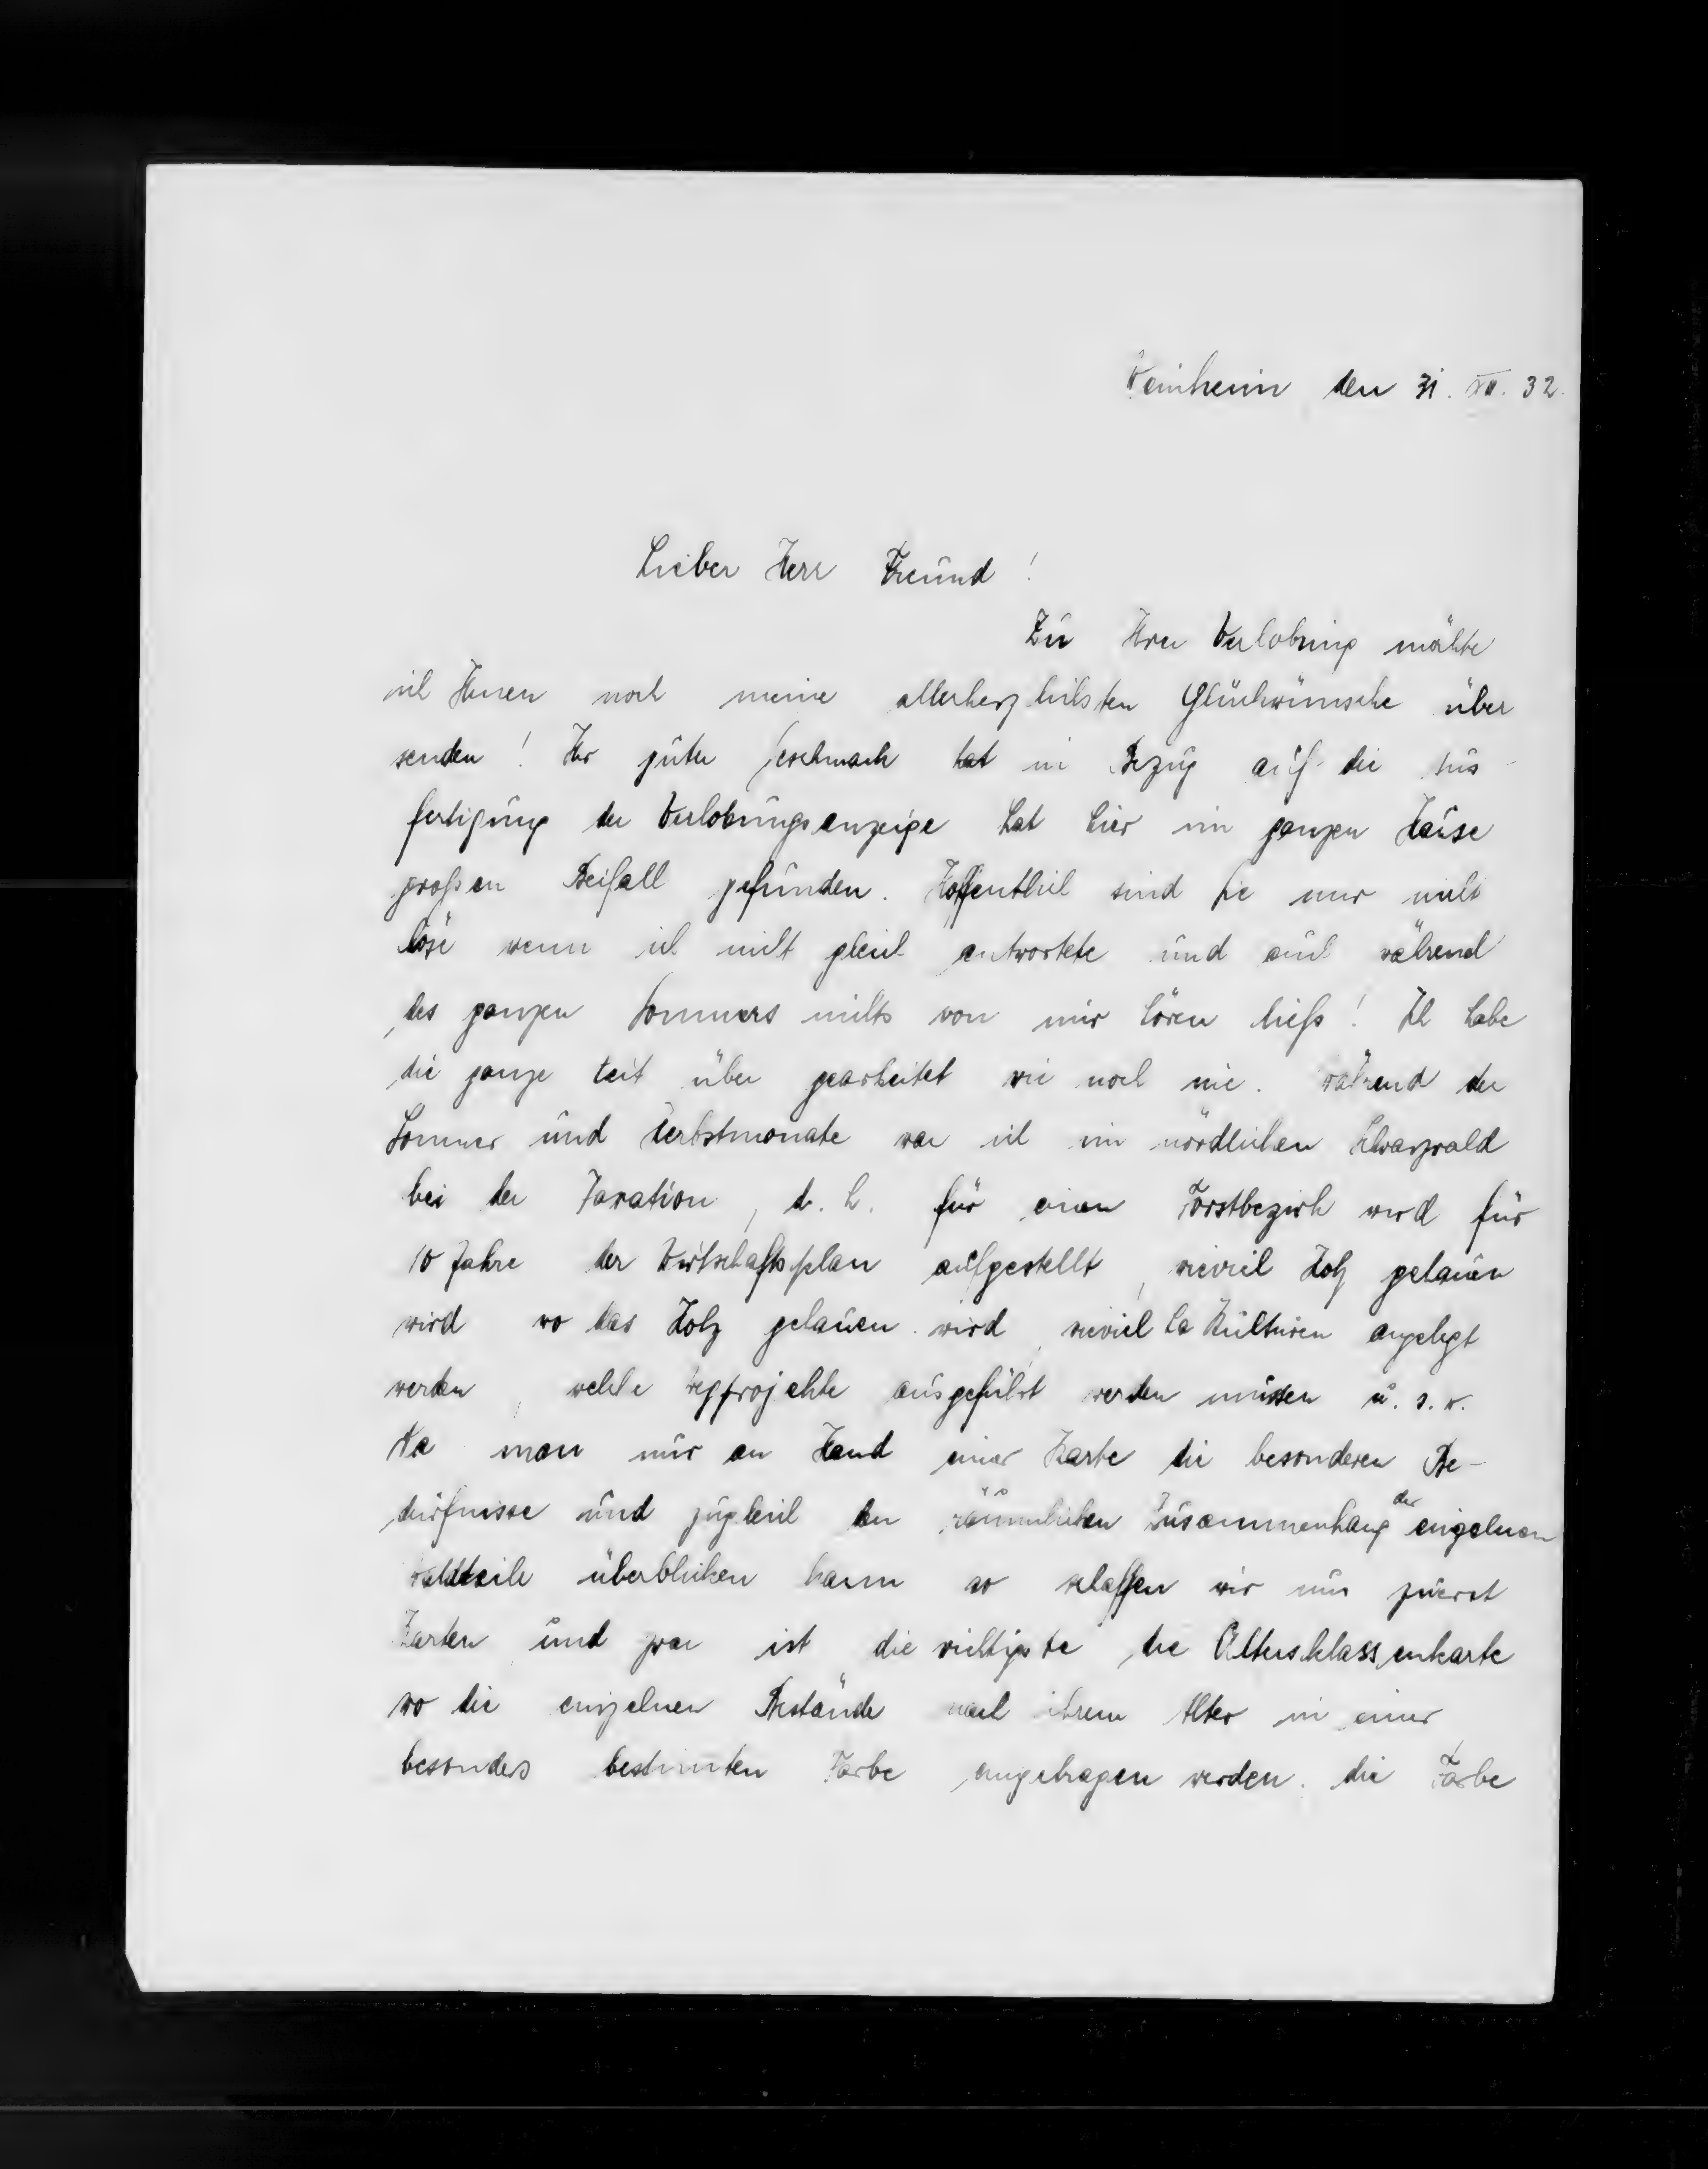 Weinheim den 31. XII. 32.
Lieber Herr Freund !
Zu Ihrer Verlobung möchte
ich Ihnen noch meine allerherzlichsten Glückwünsche über
senden ! Ihr guter Geschmack hat in Bezug auf die Aus-
fertigung der Verlobungsanzeige hat hier im ganzen Hause
großen Beifall gefunden. Hoffentlich sind Sie mir nicht
böse wenn ich nicht gleich antwortete und auch während
des ganzen Sommers nichts von mir hören ließ ! Ich habe
die ganze Zeit über gearbeitet wie noch nie. Während der
Sommer und Herbstmonate war ich im nördlichen Schwarzwald
bei der Taxation, d. h. für einen Forstbezirk wird für
10 Jahre der Wirtschaftsplan aufgestellt, wieviel Holz gehauen
wird wo das Holz gehauen wird, wieviel ha Kulturen angelegt
werden, welche Wegprojekte ausgeführt werden müssen u. s. w.
Da man nur an Hand einer Karte die besonderen Be-
dürfnisse und zugleich den räumlichen Zusammenhang der einzelnen
Waldteile überblicken kann so schaffen wir uns zuerst
Karten und zwar ist die wichtigste die Altersklassenkarte
wo die einzelnen Bestände nach ihrem Alter in einer
besonders bestimten Farbe eingetragen werden. die Farbe